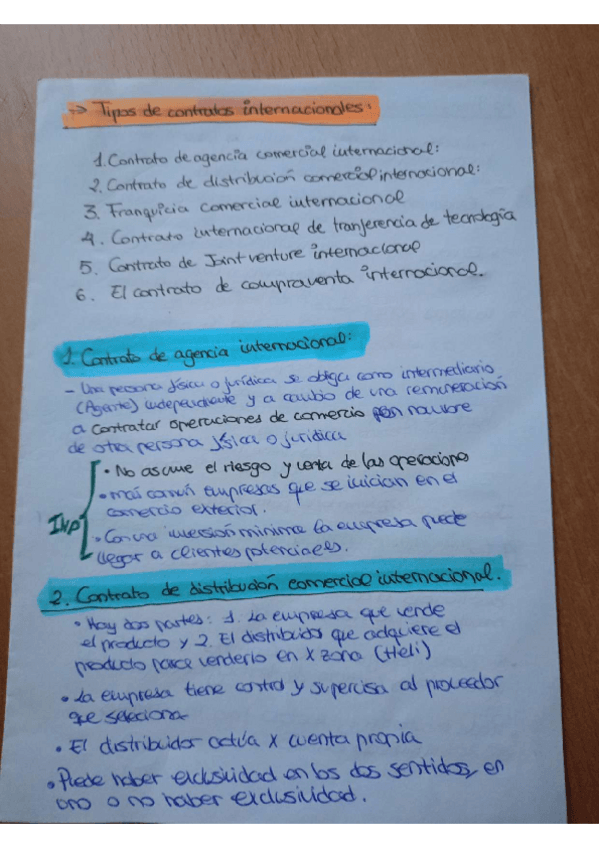 -> Tipos de contratos internacionales:
1. Contrato de agencia comercial internacional:
2. Contrato de distribución comercial internacional:
3. Franquicia comercial internacional
4. Contrato internacional de tranferencia de tecnología
5. Contrato de Joint venture internacional
6. El contrato de compraventa internacional.
1. Contrato de agencia internacional:
- Una persona física o jurídica se obliga como intermediario
(Agente) independiente y a cambio de una remuneración
a contratar operaciones de comercio por nombre
de otra persona física o jurídica
• No asume el riesgo y venta de las operaciones
• más común empresas que se inician en el
comercio exterior.
Inp
• Con una inversión mínima la empresa puede
llegar a clientes potenciales.
2. Contrato de distribución comercial internacional.
• Hay dos partes: 1. La empresa que vende
el producto y 2. El distribuidor que adquiere el
producto para venderlo en X zona (Heli)
• La empresa tiene control y supervisa al proveedor
que selecciona
• El distribuidor actúa x cuenta propia
• Puede haber exclusividad en los dos sentidos, en
uno o no haber exclusividad.